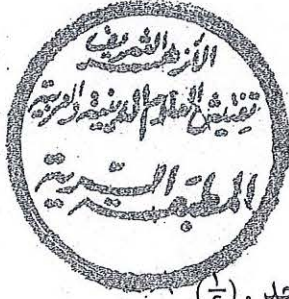 الأزهر الشريف
تفتيش العلوم الدينية والعربية
المطبعة السرية
(١/٤)